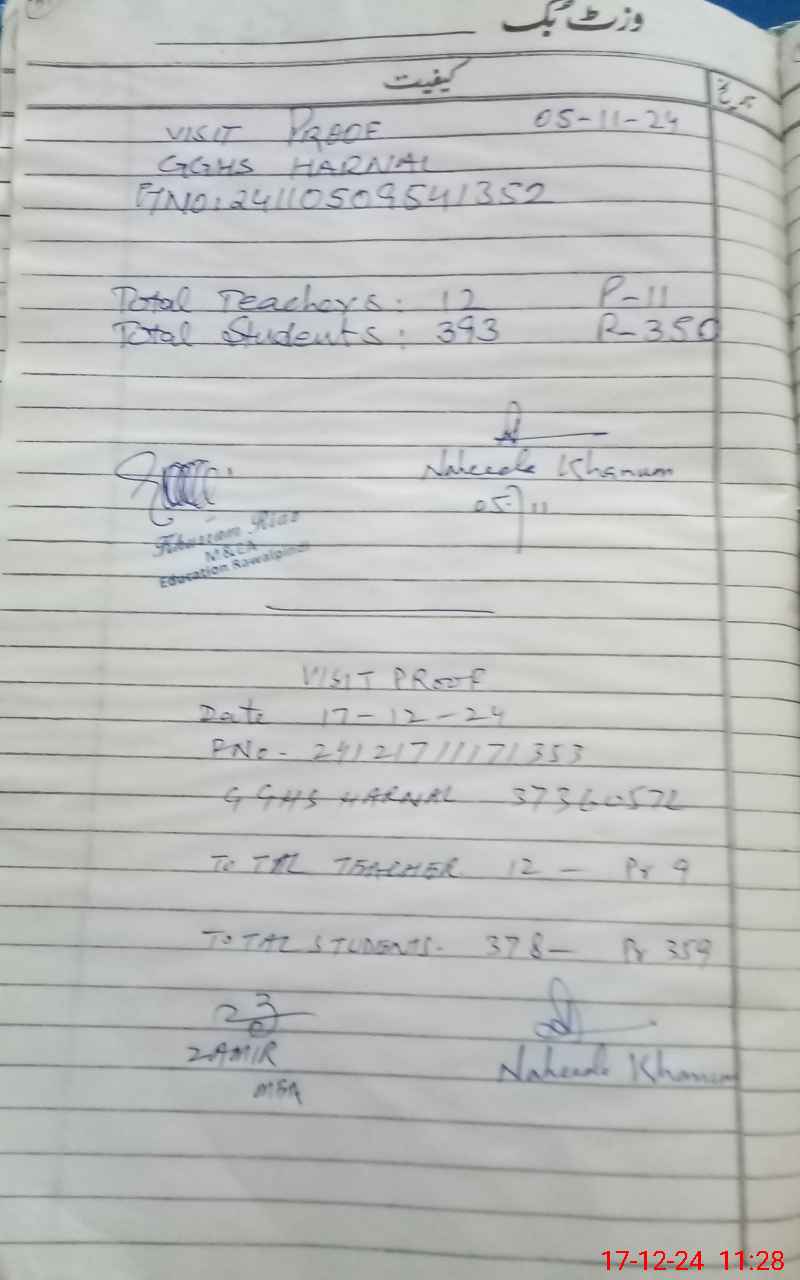 وزٹ بک
کیفیت
تاریخ
VISIT PROOF 05-11-24
GGHS HARNAL
P/NO: 24110509541352
Total Teachers: 12 P-11
Total Students: 393 P-350
Naheede Khanum
05/11
M&EA
Education Rawalpindi
VISIT PROOF
Date 17-12-24
PNo- 24121711171353
GGHS HARNAL 37360572
TOTAL TEACHER 12 - Pr 9
TOTAL STUDENTS. 378- Pr 359
ZAMIR
MEA
Naheede Khanum
17-12-24 11:28